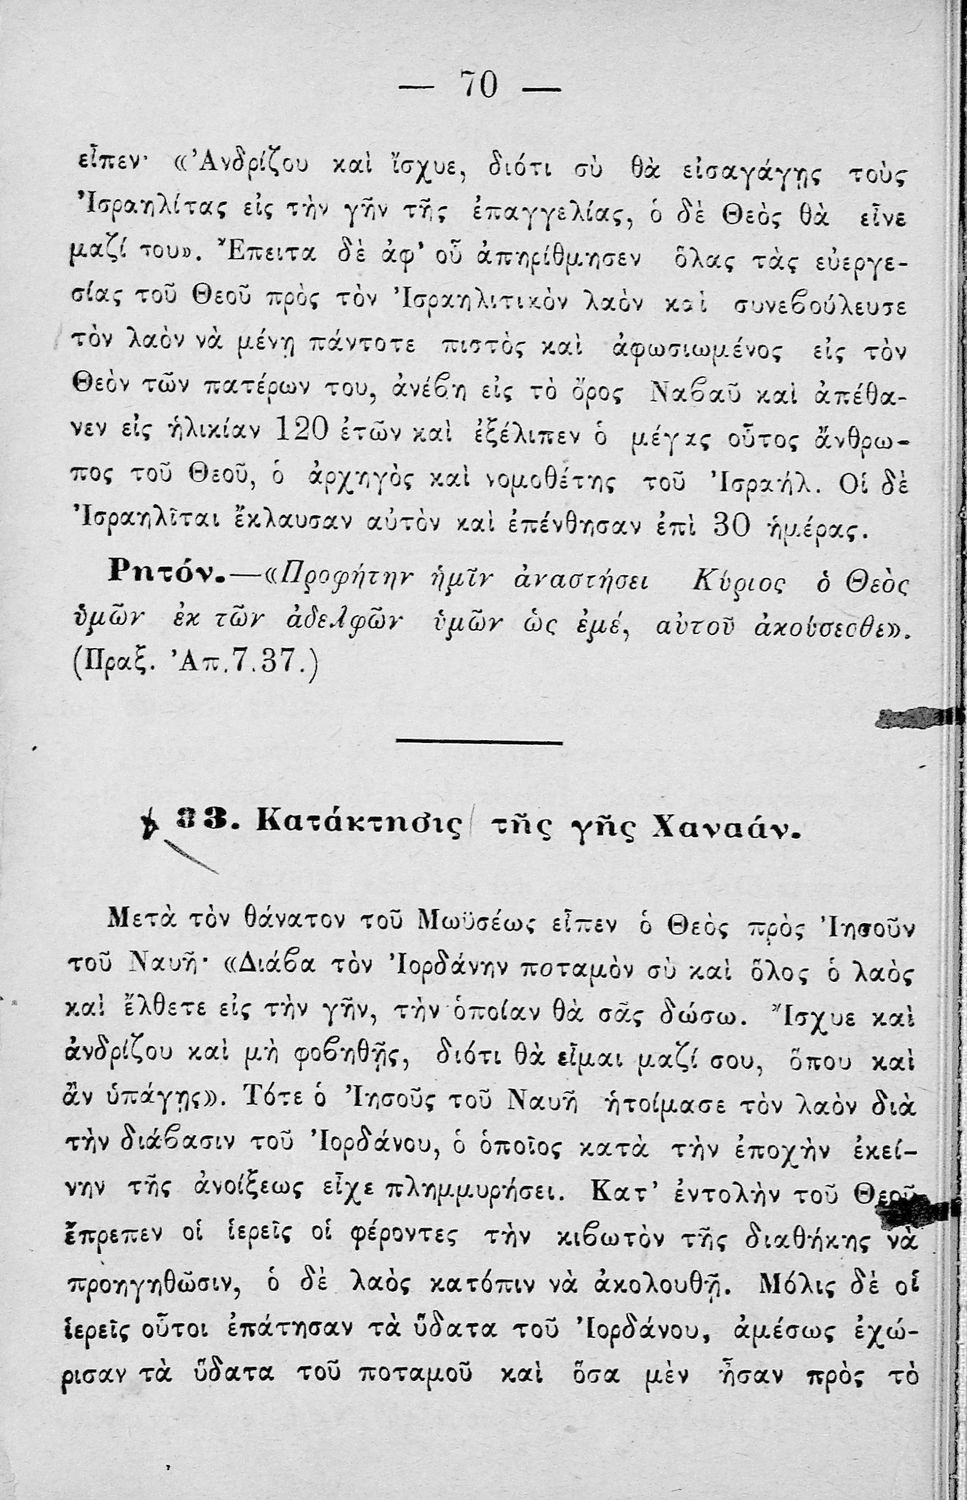 — 70 —
εἶπεν· «Ἀνδρίζου καὶ ἴσχυε, διότι σὺ θὰ εἰσαγάγῃς τοὺς
Ἰσραηλίτας εἰς τὴν γῆν τῆς ἐπαγγελίας, ὁ δὲ Θεὸς θὰ εἶνε
μαζί του». Ἔπειτα δὲ ἀφ' οὗ ἀπηρίθμησεν ὅλας τὰς εὐεργε-
σίας τοῦ Θεοῦ πρὸς τὸν Ἰσραηλιτικὸν λαὸν καὶ συνεβούλευσε
τὸν λαὸν νὰ μένῃ πάντοτε πιστὸς καὶ ἀφωσιωμένος εἰς τὸν
Θεὸν τῶν πατέρων του, ἀνέβη εἰς τὸ ὄρος Ναβαῦ καὶ ἀπέθα-
νεν εἰς ἡλικίαν 120 ἐτῶν καὶ ἐξέλιπεν ὁ μέγας οὗτος ἄνθρω-
πος τοῦ Θεοῦ, ὁ ἀρχηγὸς καὶ νομοθέτης τοῦ Ἰσραήλ. Οἱ δὲ
Ἰσραηλῖται ἔκλαυσαν αὐτὸν καὶ ἐπένθησαν ἐπὶ 30 ἡμέρας.
Ρητόν.—«Προφήτην ἡμῖν ἀναστήσει Κύριος ὁ Θεὸς
ὑμῶν ἐκ τῶν ἀδελφῶν ὑμῶν ὡς ἐμέ, αὐτοῦ ἀκούσεσθε».
(Πραξ. Ἀπ.7.37.)
33. Κατάκτησις τῆς γῆς Χαναάν.
Μετὰ τὸν θάνατον τοῦ Μωϋσέως εἶπεν ὁ Θεὸς πρὸς Ἰησοῦν
τοῦ Ναυῆ· «Διάβα τὸν Ἰορδάνην ποταμὸν σὺ καὶ ὅλος ὁ λαὸς
καὶ ἔλθετε εἰς τὴν γῆν, τὴν ὁποίαν θὰ σᾶς δώσω. Ἴσχυε καὶ
ἀνδρίζου καὶ μὴ φοβηθῇς, διότι θὰ εἶμαι μαζί σου, ὅπου καὶ
ἂν ὑπάγῃς». Τότε ὁ Ἰησοῦς τοῦ Ναυῆ ἡτοίμασε τὸν λαὸν διὰ
τὴν διάβασιν τοῦ Ἰορδάνου, ὁ ὁποῖος κατὰ τὴν ἐποχὴν ἐκεί-
νην τῆς ἀνοίξεως εἶχε πλημμυρήσει. Κατ' ἐντολὴν τοῦ Θεοῦ
ἔπρεπεν οἱ ἱερεῖς οἱ φέροντες τὴν κιβωτὸν τῆς διαθήκης νὰ
προηγηθῶσιν, ὁ δὲ λαὸς κατόπιν νὰ ἀκολουθῇ. Μόλις δὲ οἱ
ἱερεῖς οὗτοι ἐπάτησαν τὰ ὕδατα τοῦ Ἰορδάνου, ἀμέσως ἐχώ-
ρισαν τὰ ὕδατα τοῦ ποταμοῦ καὶ ὅσα μὲν ἦσαν πρὸς τὸ